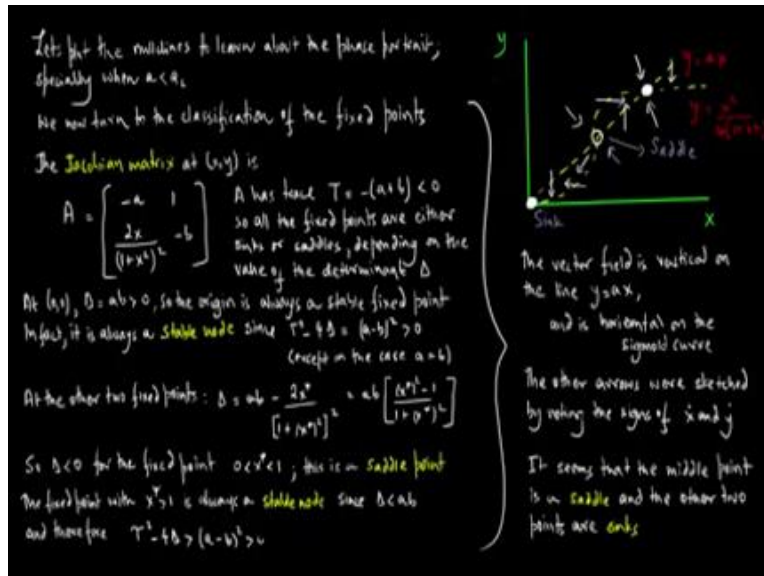 Lets put the nullclines to learn about the phase portrait,
specially when a < ac
We now turn to the classification of the fixed points
The Jacobian matrix at (x,y) is
A = [ -a 1
2x/(1+x²)² -b ]
A has trace T = -(a+b) < 0
so all the fixed points are either
sinks or saddles, depending on the
value of the determinant Δ
At (0,0), Δ = ab > 0, so the origin is always a stable fixed point
In fact, it is always a stable node since T² - 4Δ = (a-b)² > 0
(except in the case a = b)
At the other two fixed points: Δ = ab - 2x*/[1+(x*)²]² = ab [ (x*)² - 1 / 1+(x*)² ]
So Δ<0 for the fixed point 0<x*<1; this is a saddle point
The fixed point with x*>1 is always a stable node since Δ<ab
and therefore T² - 4Δ > (a-b)² > 0
y
y = ax
Saddle
Sink
x
The vector field is vertical on
the line y=ax,
and is horizontal on the
sigmoid curve
The other arrows were sketched
by noting the signs of ẋ and ẏ
It seems that the middle point
is a saddle and the other two
points are sinks